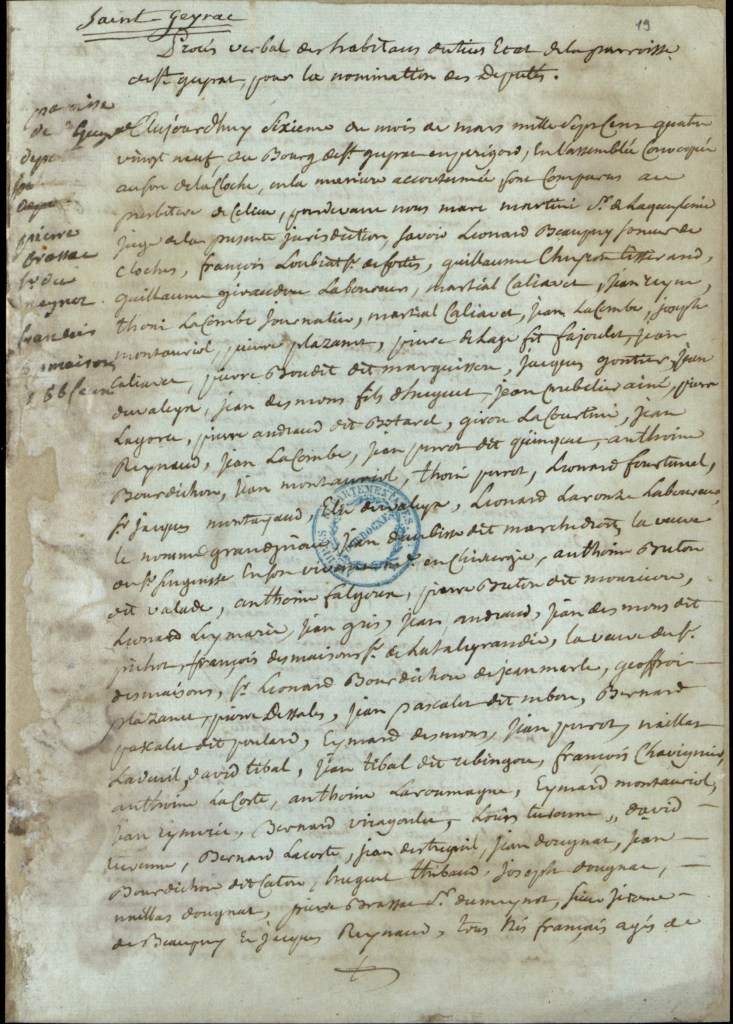 Saint-Geyrac
19
Procés verbal des habitans du tiers Etat de la parroisse
de st. geyrac, pour la nomination des Deputés.
paroisse
de st Geyrac
depu
pierre
Brassac
sr. du
meynot
francois
maison
156 feux
Aujourdhuy sixieme du mois de mars mille sept cens quatre
vingt neuf au Bourg de st. geyrac en perigord, En l'assemblée Convoquée
au son de la Cloche, en la maniere accoutumée sont Comparus au
presbitere de Celieu, pardevant nous marc martini sr. de
juge de la presente jurisdiction, savoir Léonard Beaupuy sonneur de
cloches, françois Loubiat sr. de , guillaume tisserand,
guillaume giraudou Laboureur, martial Caliavet, jean
thoni LaCombe Journalier, martial Caliavet, jean LaCombe, joseph
montauriol, pierre plazanet, pierre delage dit fajoulet, jean
Caliavet, pierre Boudit dit marquisson, jacques gontier, jean
duvaleix, jean desmons fils d'huguet, jean ainé, pierre
Lagorce, pierre andraud dit Botard, girou LaCourtine, jean
Reynaud, jean LaCombe, jean perrot dit , anthoine
Bourdichou, jean montauriol, thoni perrot, Léonard fourtunel,
sr. jacques montozaud, Elie duvaleix, Léonard Laronze Laboureur,
le nommé , jean dit marchedroit, la veuve
du sr. En son vivant en Chirurgie, anthoine Breton
dit valade, anthoine falgoux, pierre Breton dit mouricou,
Léonard Leymarie, jean gris, jean andraud, jean desmons dit
pichot, françois desmaisons sr. de , la veuve du sr.
desmaisons, sr. Léonard Bourdichou de jean marle, geoffroi
plazanet, pierre Dessales, jean pascalet dit mbon, Bernard
pascalet dit poulard, Eymard desmons, jean perrot, naillat
Laveuil, david tibal, jean tibal dit ribingou, francois Chavignier,
anthoine LaCoste, anthoine Laroumagne, Eymard montauriol,
jean Eymerie, Bernard viragoulet, Louis tusonne, david
, Bernard Lacoste, jean dutreuil, jean dougnac, jean
Bourdichou dit Caton, huguet thibaud, joseph dougnac,
naillat dougnac, pierre Brassac sr. dumeynot, sieur jérome
de Beaupuy Et jacques Reynaud, tous Nés français agés de